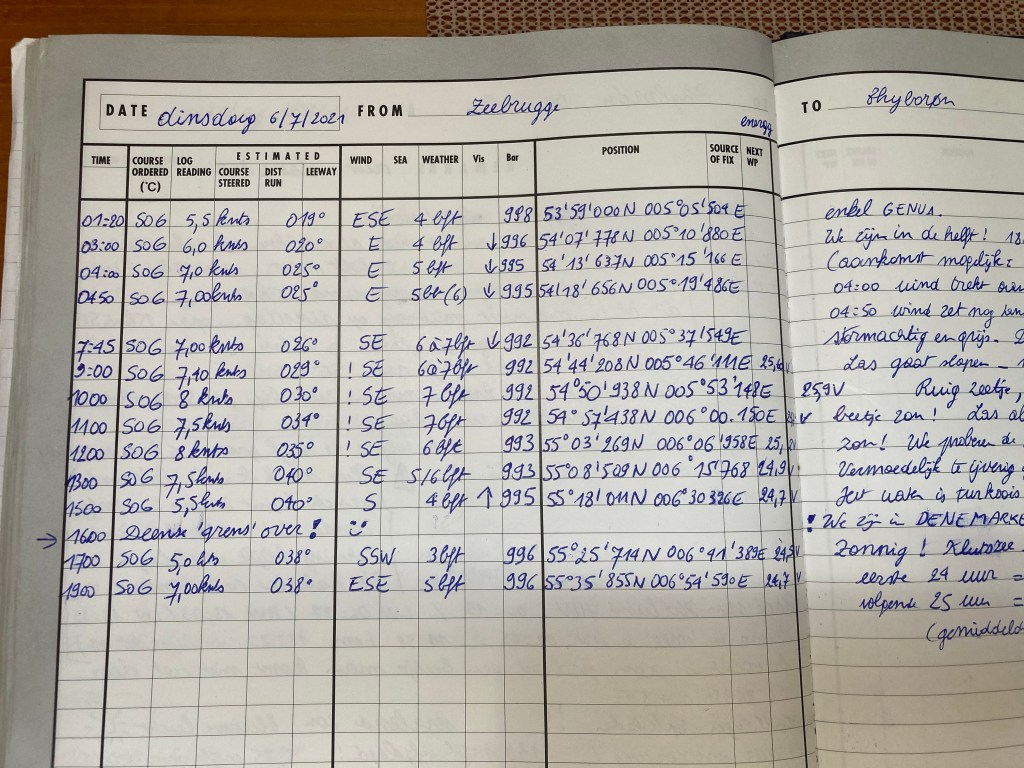 DATE dinsdag 6/7/2021 FROM Zeebrugge TO Thyborøn
energy
TIME COURSE ORDERED (°C) LOG READING ESTIMATED COURSE STEERED DIST RUN LEEWAY WIND SEA WEATHER Vis Bar POSITION SOURCE OF FIX NEXT WP
01:20 SOG 5,5 knts 019° ESE 4 bft 998 53°59'000N 005°05'504E enkel GENUA.
03:00 SOG 6,0 knts 020° E 4 bft ↓ 996 54°07'778N 005°10'880E We zijn in de helft! 18
04:00 SOG 7,0 knts 025° E 5 bft ↓ 995 54°13'637N 005°15'166E (aankomst mogelijk:
0450 SOG 7,00 knts 025° E 5 bft (6) ↓ 995 54°18'656N 005°19'486E 04:00 wind trekt
04:50 wind zet nog
7:45 SOG 7,00 knts 026° SE 6 à 7 bft ↓ 992 54°36'768N 005°37'549E stormachtig en grijs.
9:00 SOG 7,40 knts 029° ! SE 6 à 7 bft 992 54°44'208N 005°46'111E Las gaat slapen –
1000 SOG 8 knts 030° ! SE 7 bft 992 54°50'938N 005°53'148E 25,9V Ruig zeetje,
1100 SOG 7,5 knts 034° ! SE 7 bft 992 54°57'438N 006°00.150E V beetje zon!
1200 SOG 8 knts 035° ! SE 6 bft 993 55°03'269N 006°06'958E zon! We proberen de
1300 SOG 7,5 knts 040° SE 5/6 bft 993 55°08'509N 006°15'768 24,9V Vermoedelijk te ijverig
1500 SOG 5,5 knts 040° S 4 bft ↑ 995 55°18'011N 006°30326E 24,7V Het water is turkoois
→ 1600 Deense 'grens' over! :) ! We zijn in DENEMARKE
1700 SOG 5,0 kts 038° SSW 3 bft 996 55°25'714N 006°41'389E Zonnig!
1900 SOG 7,00 knts 038° ESE 5 bft 996 55°35'855N 006°54'590E 24,7V eerste 24 uur =
volgende 25 uur =
(gemiddeld